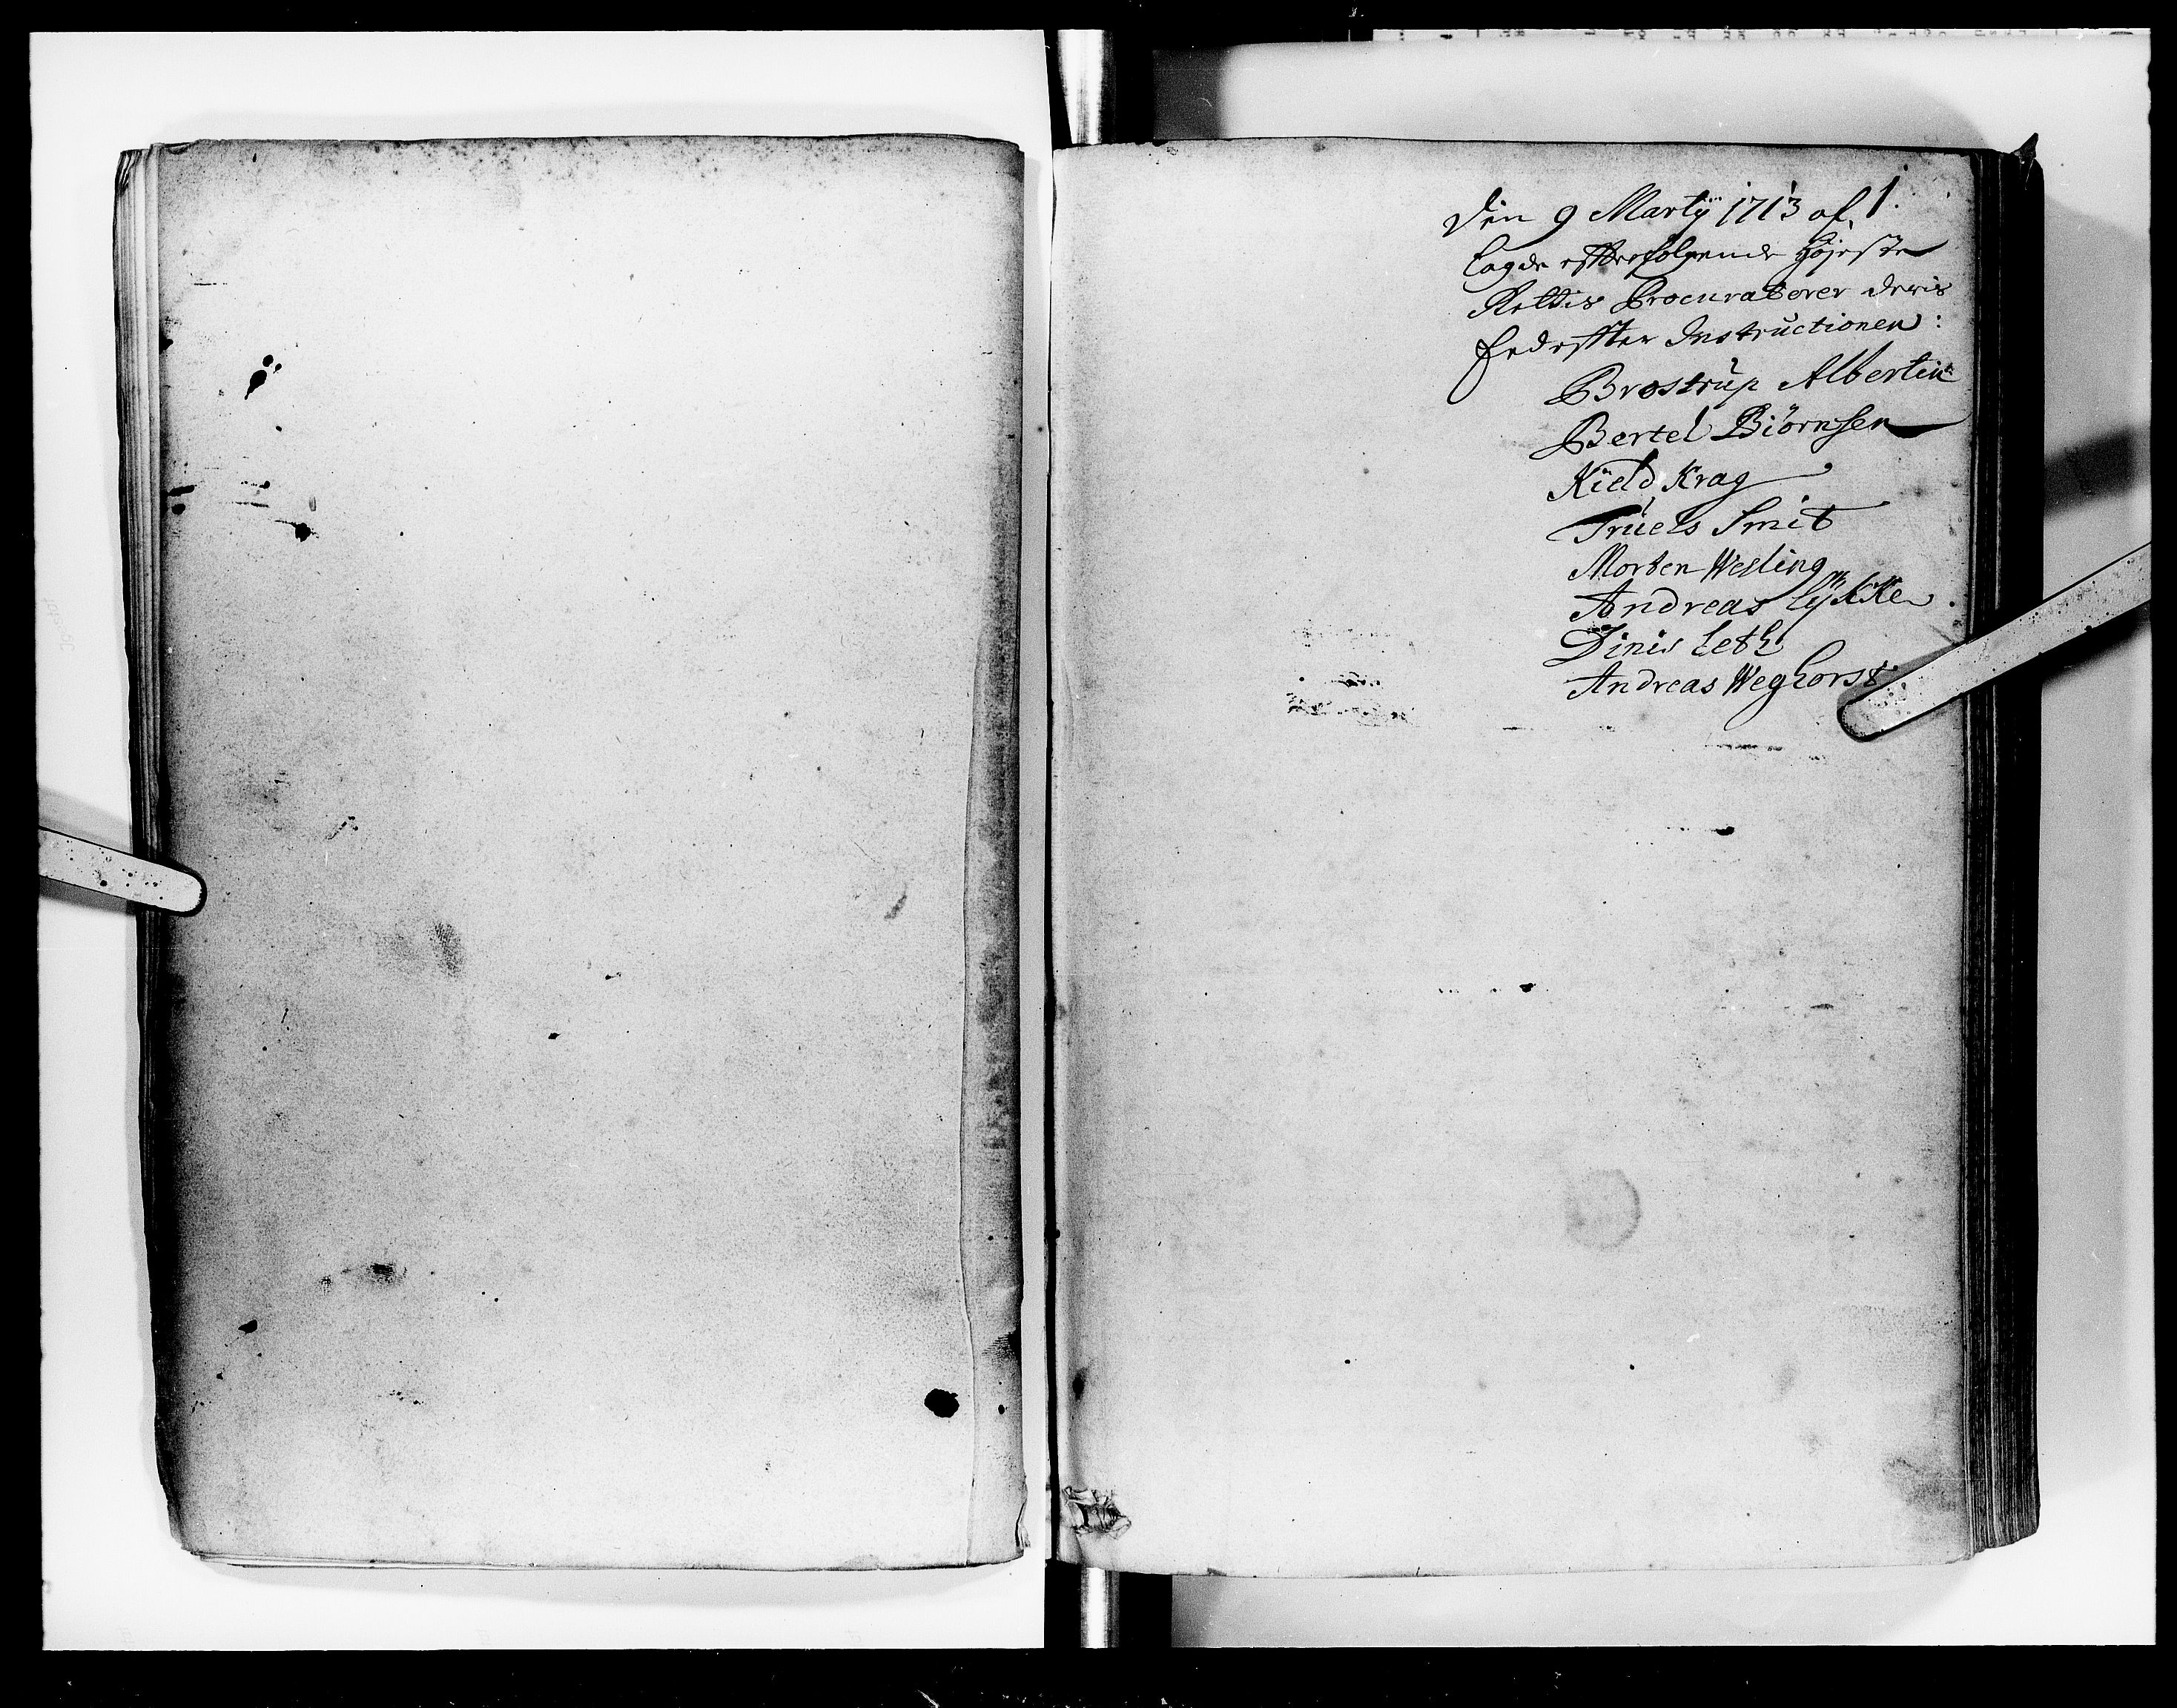 1.
Den 9 Martÿ 1713 af,,
lagde efterfølgende Højeste
Rettis Procuratorer deris
Eed efter Instructionen:
Brostrup Albertin
Bertel Biørnsen
Kield Krag
Truels Smit
Morten Wesling
Andreas Lÿkke
Dinis Leth
Andreas Weghorst